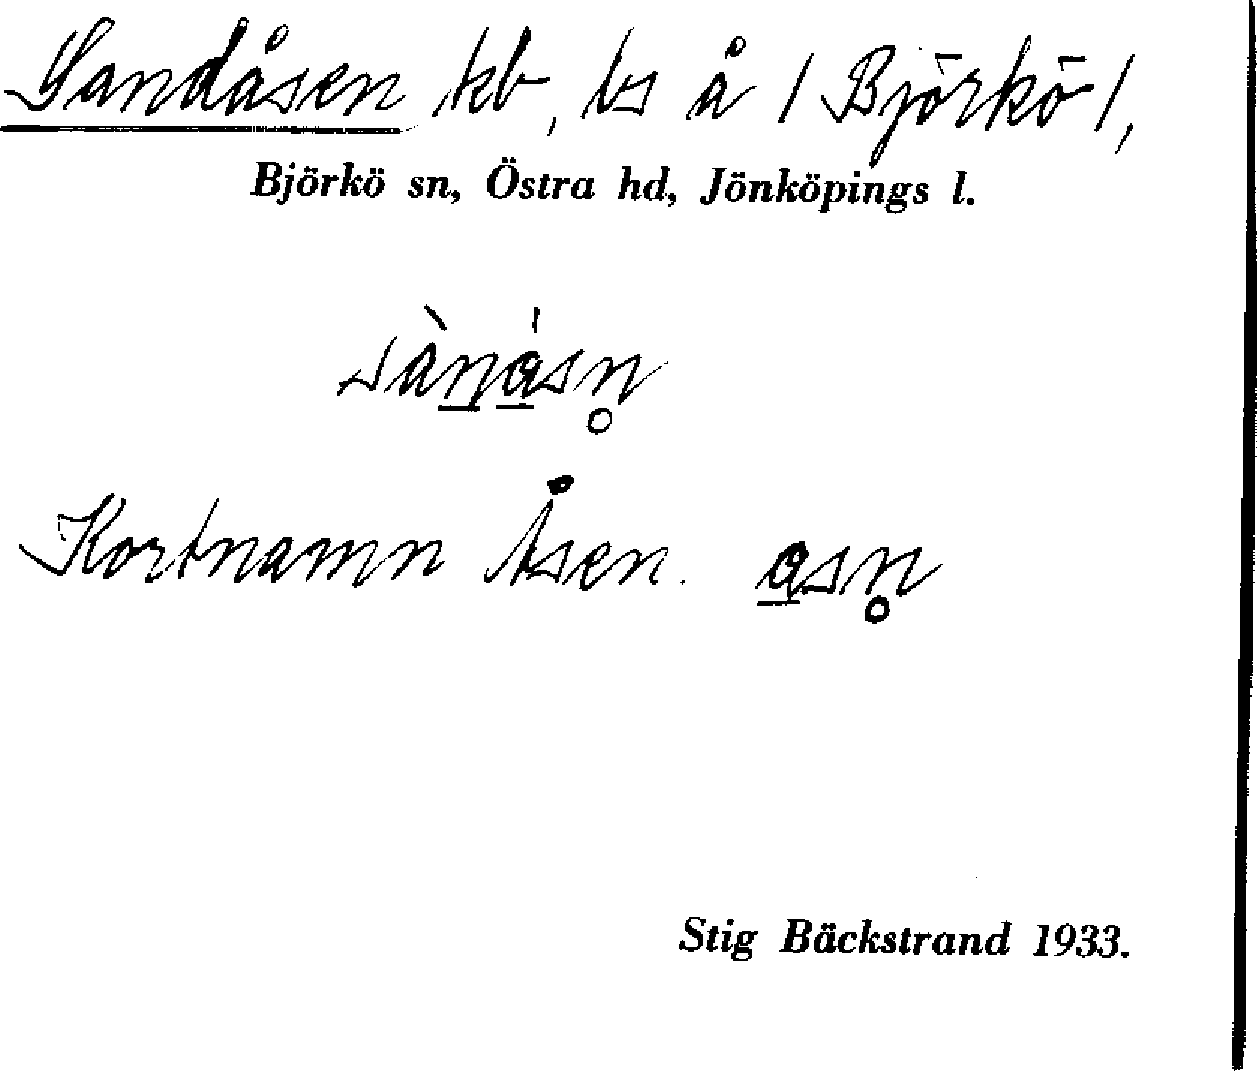 Sandåsen kb, ls å / Björkö /,
Björkö sn, Östra hd, Jönköpings l.
sànásn̥
Kortnamn Åsen. asn̥
Stig Bäckstrand 1933.